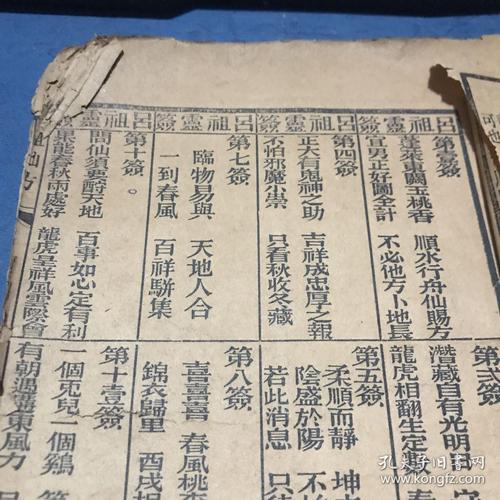 呂祖靈簽
呂祖靈簽
呂祖靈簽
呂祖靈簽
蓬萊東閣玉桃香 順水行舟仙賜方
宜男正好圖全計 不必他方卜地長
第四簽
正大有鬼神之助 吉祥成忠厚之報
不怕邪魔小祟 只看秋收冬藏
第七簽
臨物易與 天地人合
一到春風 百祥駢集
第十簽
問仙須要酧天地 百事如心定有利
果能春秋兩處好 龍虎呈祥風雲際會
第弍簽
潛藏自有光明
龍虎相翻生定數
第五簽
柔順而靜 坤
陰盛於陽 不
若此消息 只
第八簽
喜喜喜 春風桃李
錦衣歸里 酉戌
第十壹簽
一個兎兒一個鷄
有朝遇着東風力 只
孔夫子旧书网